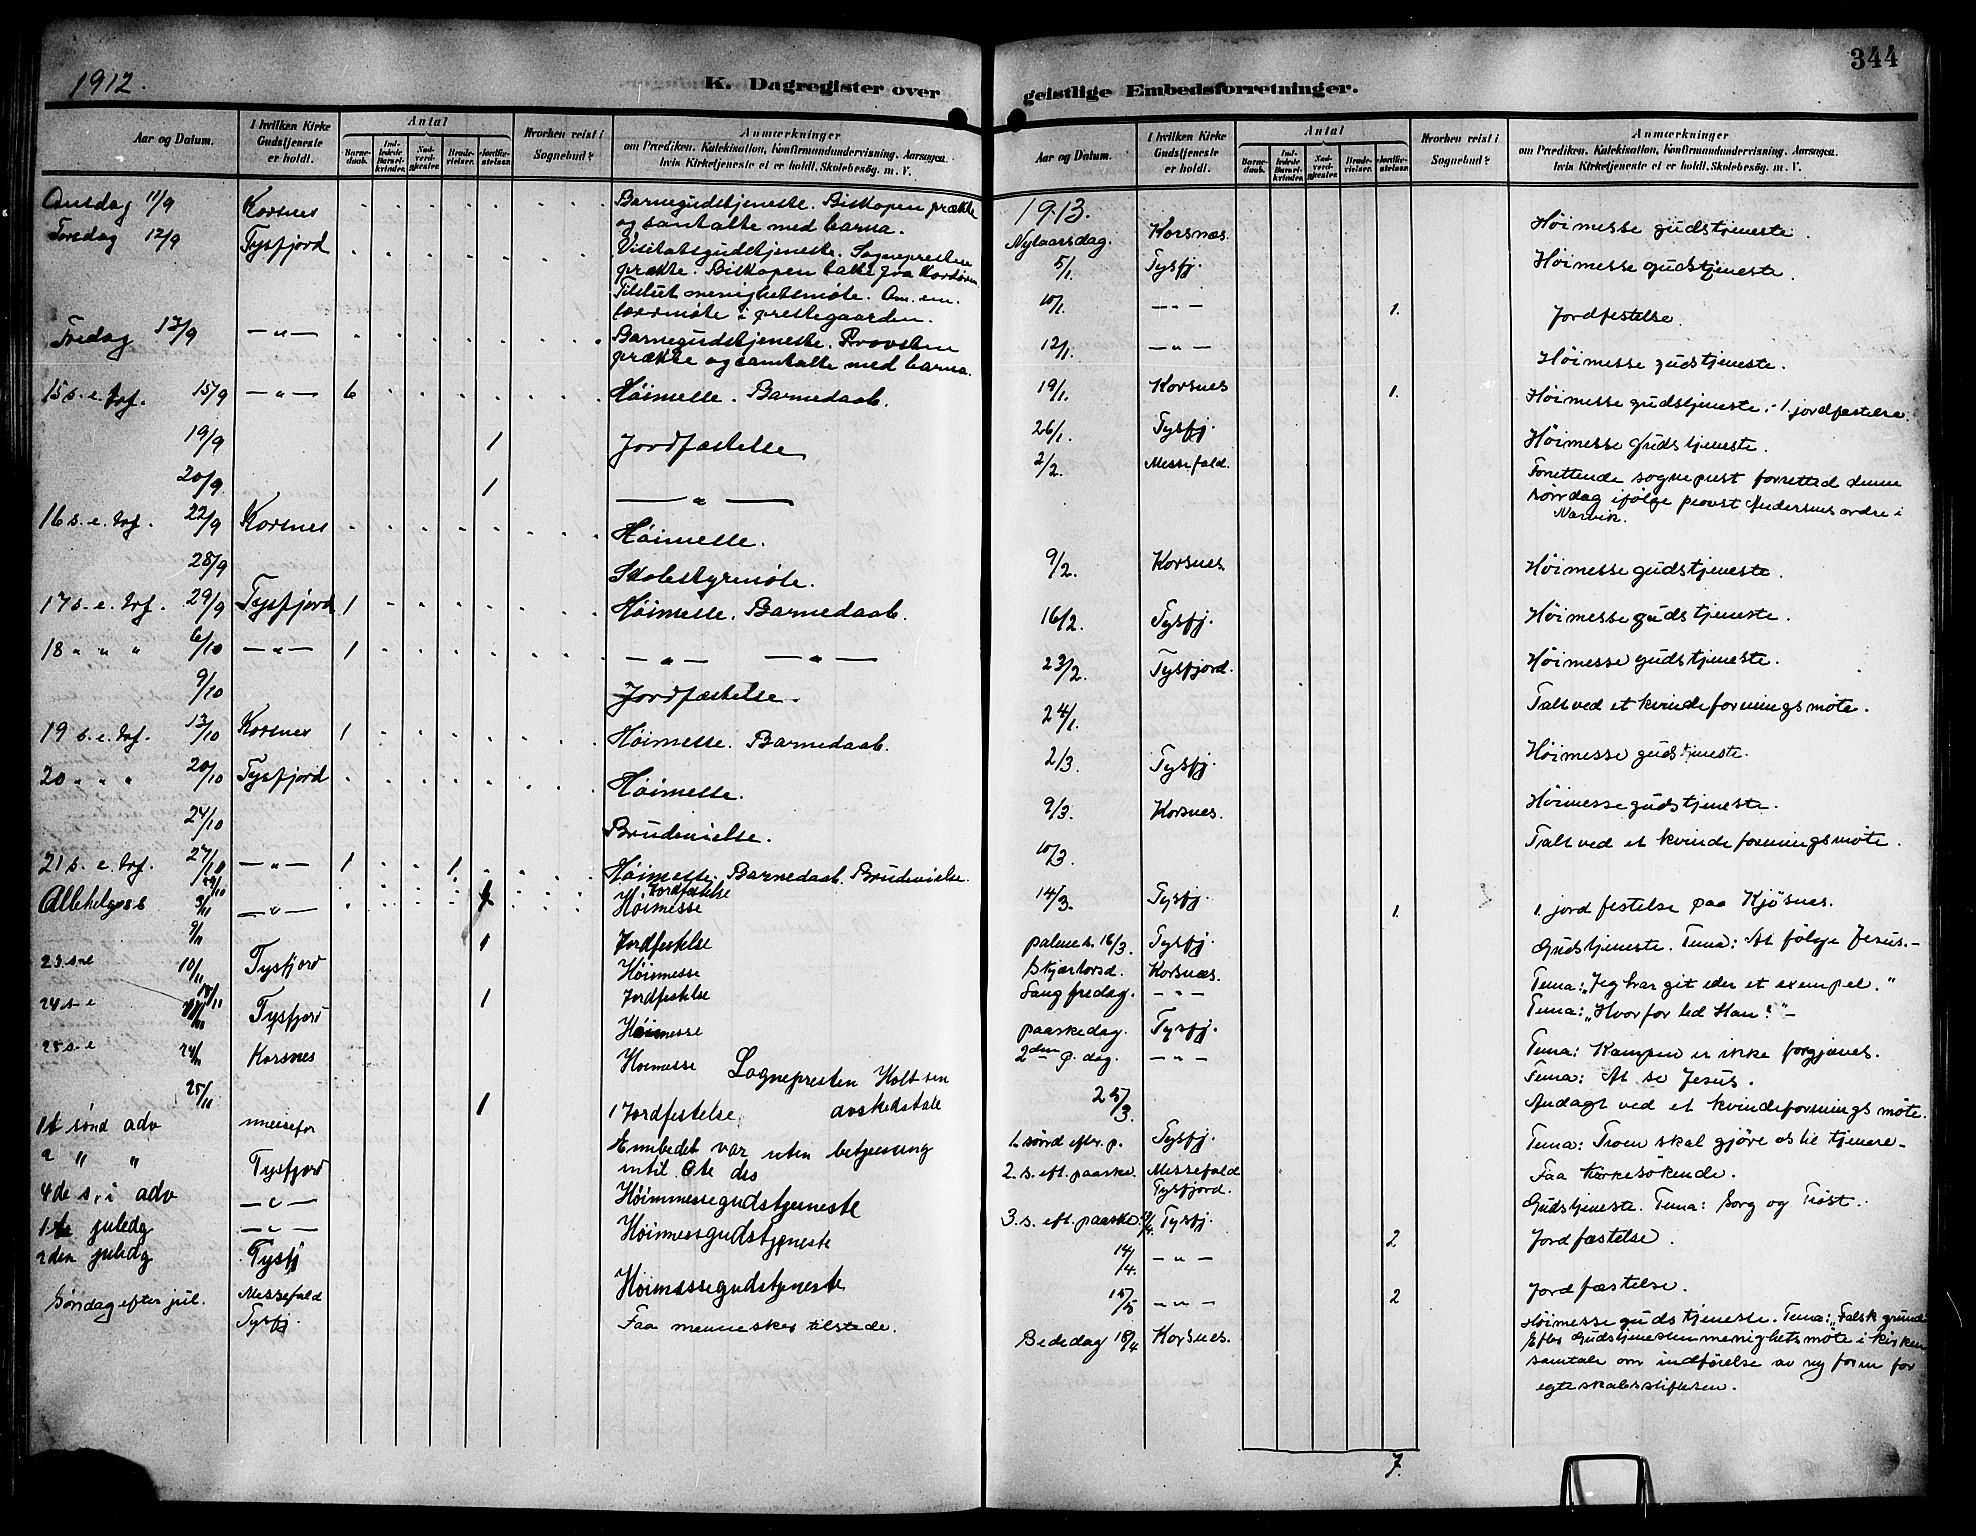 344
1912.
K. Dagregister over
Aar og Datum.
I hvilken Kirke Gudstjeneste er holdt.
Antal
Barne-daab.
Ind-ledede Barsel-kvinder.
Nad-verd-gjester.
Brude-vielser.
Jordfæ-stelser.
Hvorhen reist i Sognebud?
Anmærkninger
om Prædiken, Katekisation, Konfirmandundervisning, Aarsagen,
hvis Kirketjeneste ei er holdt, Skolebesøg, m. V.
Onsdag 11/9 Korsnes Barnegudstjeneste. Biskopen prækte
og samtalte med barna.
Torsdag 12/9 Tysfjord Visitatsgudstjeneste. Sognepresten
prækte. Biskopen talte fra Kordøren
Tilslut menighetsmøte. Om em.
lærermøte i prestegaarden.
Fredag 13/9 —„— Barnegudstjeneste. Provsten
prækte og samtalte med barna.
15 s. e. trf. 15/9 —„— 6 Høimesse. Barnedaab.
19/9 1 Jordfæstelse
20/9 1 —„—
16 s. e. trf. 22/9 Korsnes Høimesse.
28/9 Skolestyremøte.
17 s. e. trf. 29/9 Tysfjord 1 Høimesse. Barnedaab.
18 „ „ „ 6/10 —„— 1 —„— —„—
9/10 Jordfæstelse.
19 s. e. trf. 13/10 Korsnes 1 Høimesse. Barnedaab.
20 „ „ „ 20/10 Tysfjord Høimesse.
24/10 Brudevielse.
21 s. e. trf. 27/10 —„— 1 1 Høimesse. Barnedaab. Brudevielse.
Jordfæstelse
Allehelgess 3/11 —„— Høimesse
9/11 1 Jordfestelse
23 s. e 10/11 Tysfjord Høimesse
1 Jordfestelse
24 s. e Tysfjord Høimesse
25 s. e 24/11 Korsnes Høimesse Sognepresten Holt sin
avskedstale
25/11 1 1 Jordfestelse.
1t sønd adv messefor Embedet var uten betjening
2 „ „ Tysfjord intil 8te des
4de s. i adv —„— Høimmessegudstjeneste
1te juledg —„— Høimessgudstjeneste
2den juledg Tysfj Høimessegudstjeneste
Søndag efter jul. Messefald
Tysfj. Faa mennesker tilstede.
geistlige Embedsforretninger.
Aar og Datum.
I hvilken Kirke Gudstjeneste er holdt.
Antal
Barne-daab.
Ind-ledede Barsel-kvinder.
Nad-verd-gjester.
Brude-vielser.
Jordfæ-stelser.
Hvorhen reist i Sognebud?
Anmærkninger
om Prædiken, Katekisation, Konfirmandundervisning, Aarsagen,
hvis Kirketjeneste ei er holdt, Skolebesøg, m. V.
1913.
Nytaarsdag. Korsnæs. Høimesse gudstjeneste.
5/1. Tysfj. Høimesse gudstjeneste.
10/1. —„— 1. Jordfestelse.
12/1. —„— Høimesse gudstjeneste.
19/1. Korsnes 1. Høimesse gudstjeneste. - 1. jordfæstelse
26/1. Tysfj. Høimesse gudstjeneste.
2/2. Messefald. Forrettende sogneprest forretted denne
søndag ifølge provst Andersens ordre i
Narvik.
9/2. Korsnes Høimesse gudstjeneste.
16/2. Tysfj. Høimesse gudstjeneste.
23/2. Tysfjord. Høimesse gudstjeneste.
24/1. Talt ved et kvindeforeningsmøte.
2/3. Tysfj. Høimesse gudstjeneste.
9/3. Korsnes. Høimesse gudstjeneste.
10/3. Talt ved et kvindeforeningsmøte.
14/3. Tysfj. 1. 1. jordfestelse paa Kjøsnes.
palmes. 16/3. Tysfj. Gudstjeneste. Tema: At følge Jesus.-
Skjærtorsd. Korsnæs. Tema: „Jeg har git eder et exempel."
Langfredag. —„— Tema: „Hvorfor led Han?"-
paaskedag. Tysfj. Tema: Kampen er ikke forgjæves.
2den p. dag. —„— Tema: At se Jesus.
25/3. Andagt ved et kvindeforenings møte.
1. sønd efter. p. Tysfj. Tema: Troen skal gjöre os til tjenere-
2. s. eft. paaske. Messefald Faa kirkesökende.
Tysfjord.
3. s. eft. paaske. Tysfj. Gudstjeneste. Tema: Sorg og Trøst.
14/4. —„— 2 Jordfæstelse.
15/5 —„— 2 Jordfæstelse.
Bededag 18/4 Korsnes. Høimesse gudstjeneste. Tema: „Falsk grund
Efter Gudstjenesten menighetsmøte i kirken
samtale om indførelse av ny form for
egteskabsstiftelsen.
7.